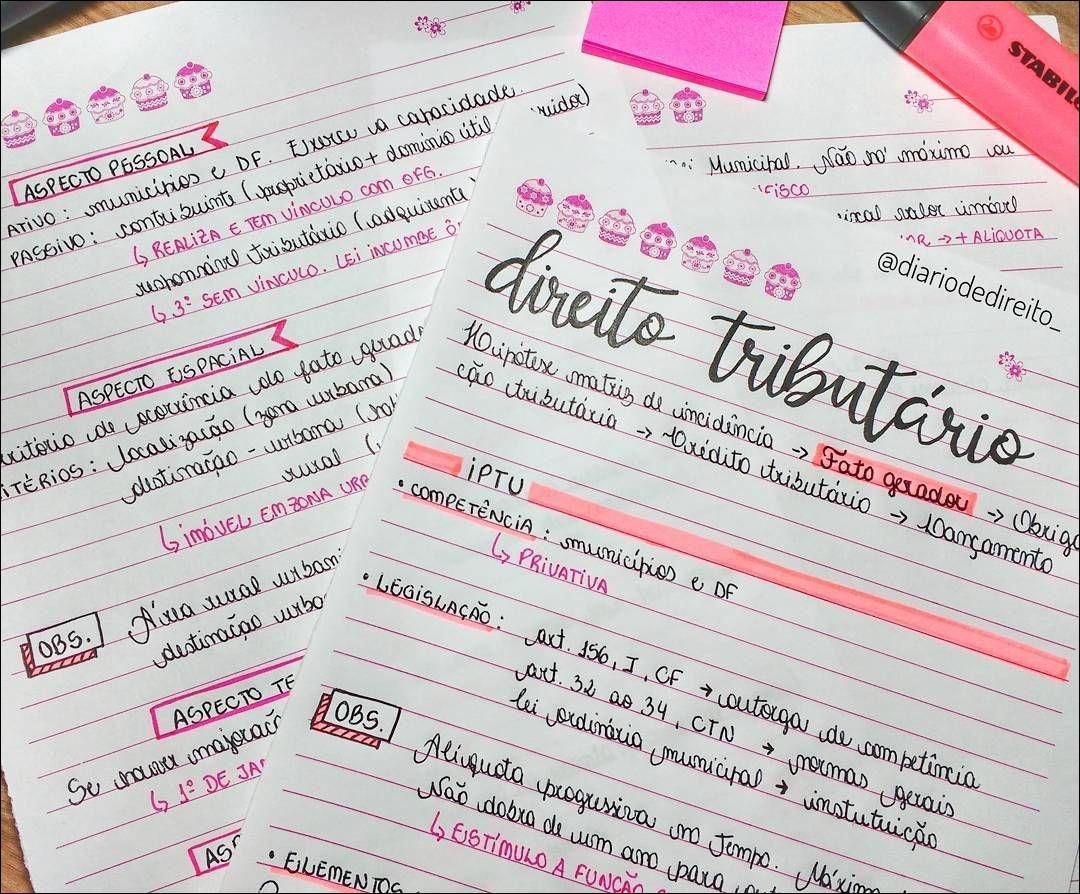 ASPECTO PESSOAL
ATIVO: municípios e DF. Exerce a capacidade.
PASSIVO: contribuinte (proprietário + domínio útil
↳ REALIZA E TEM VÍNCULO COM OFG.
responsável tributário (adquirente
↳ 3º SEM VÍNCULO. LEI INCUMBE
ASPECTO ESPACIAL
de ocorrência do fato
localização (zona urbana)
destinação - urbana
rural
↳ IMÓVEL EM ZONA
OBS. Área rural
destinação
ASPECTO
Se houver
↳ 1º DE
Municipal. Não no máximo ou
FISCO
valor imóvel
→ + ALIQUOTA
STABILO
@diariodedireito_
direito tributário
Hipótese matriz de incidência → Fato gerador → Obriga
ção tributária → Crédito tributário → Lançamento
IPTU
• COMPETÊNCIA: municípios e DF
↳ PRIVATIVA
• LEGISLAÇÃO: art. 156, I, CF → outorga de competência
art. 32 ao 34, CTN → normas gerais
lei ordinária municipal → instutuição
OBS. Alíquota progressiva no Tempo.
Não dobra de um ano para
↳ ESTÍMULO A FUNÇÃO
• ELEMENTOS